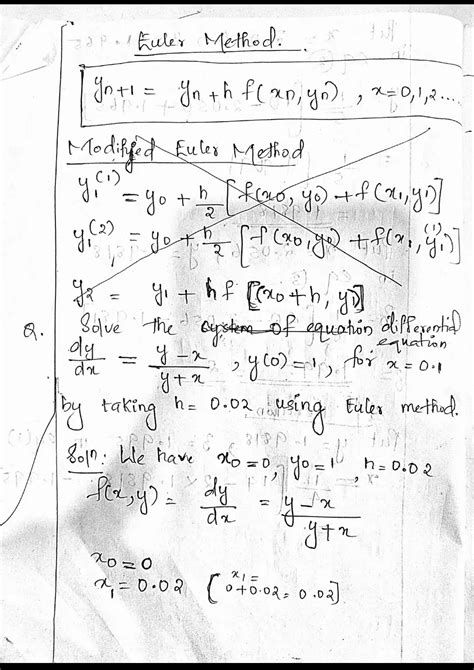 Euler Method.
yn+1 = yn + h f(xn, yn) , x=0,1,2...
Modifyed Euler Method
y1^(1) = y0 + h/2 [f(x0, y0) + f(x1, y1)]
y1^(2) = y0 + h/2 [f(x0, y0) + f(x1, y1^(1))]
y2 = y1 + h f [(x0 + h, y1)]
Q. Solve the system of equation differential equation
dy/dx = y-x/y+x , y(0)=1, for x=0.1
by taking h= 0.02 using Euler method.
Soln: We have x0=0, y0=1, h=0.02
f(x,y) = dy/dx = y-x/y+x
x0=0
x1=0.02 [x1= 0+0.02= 0.02]